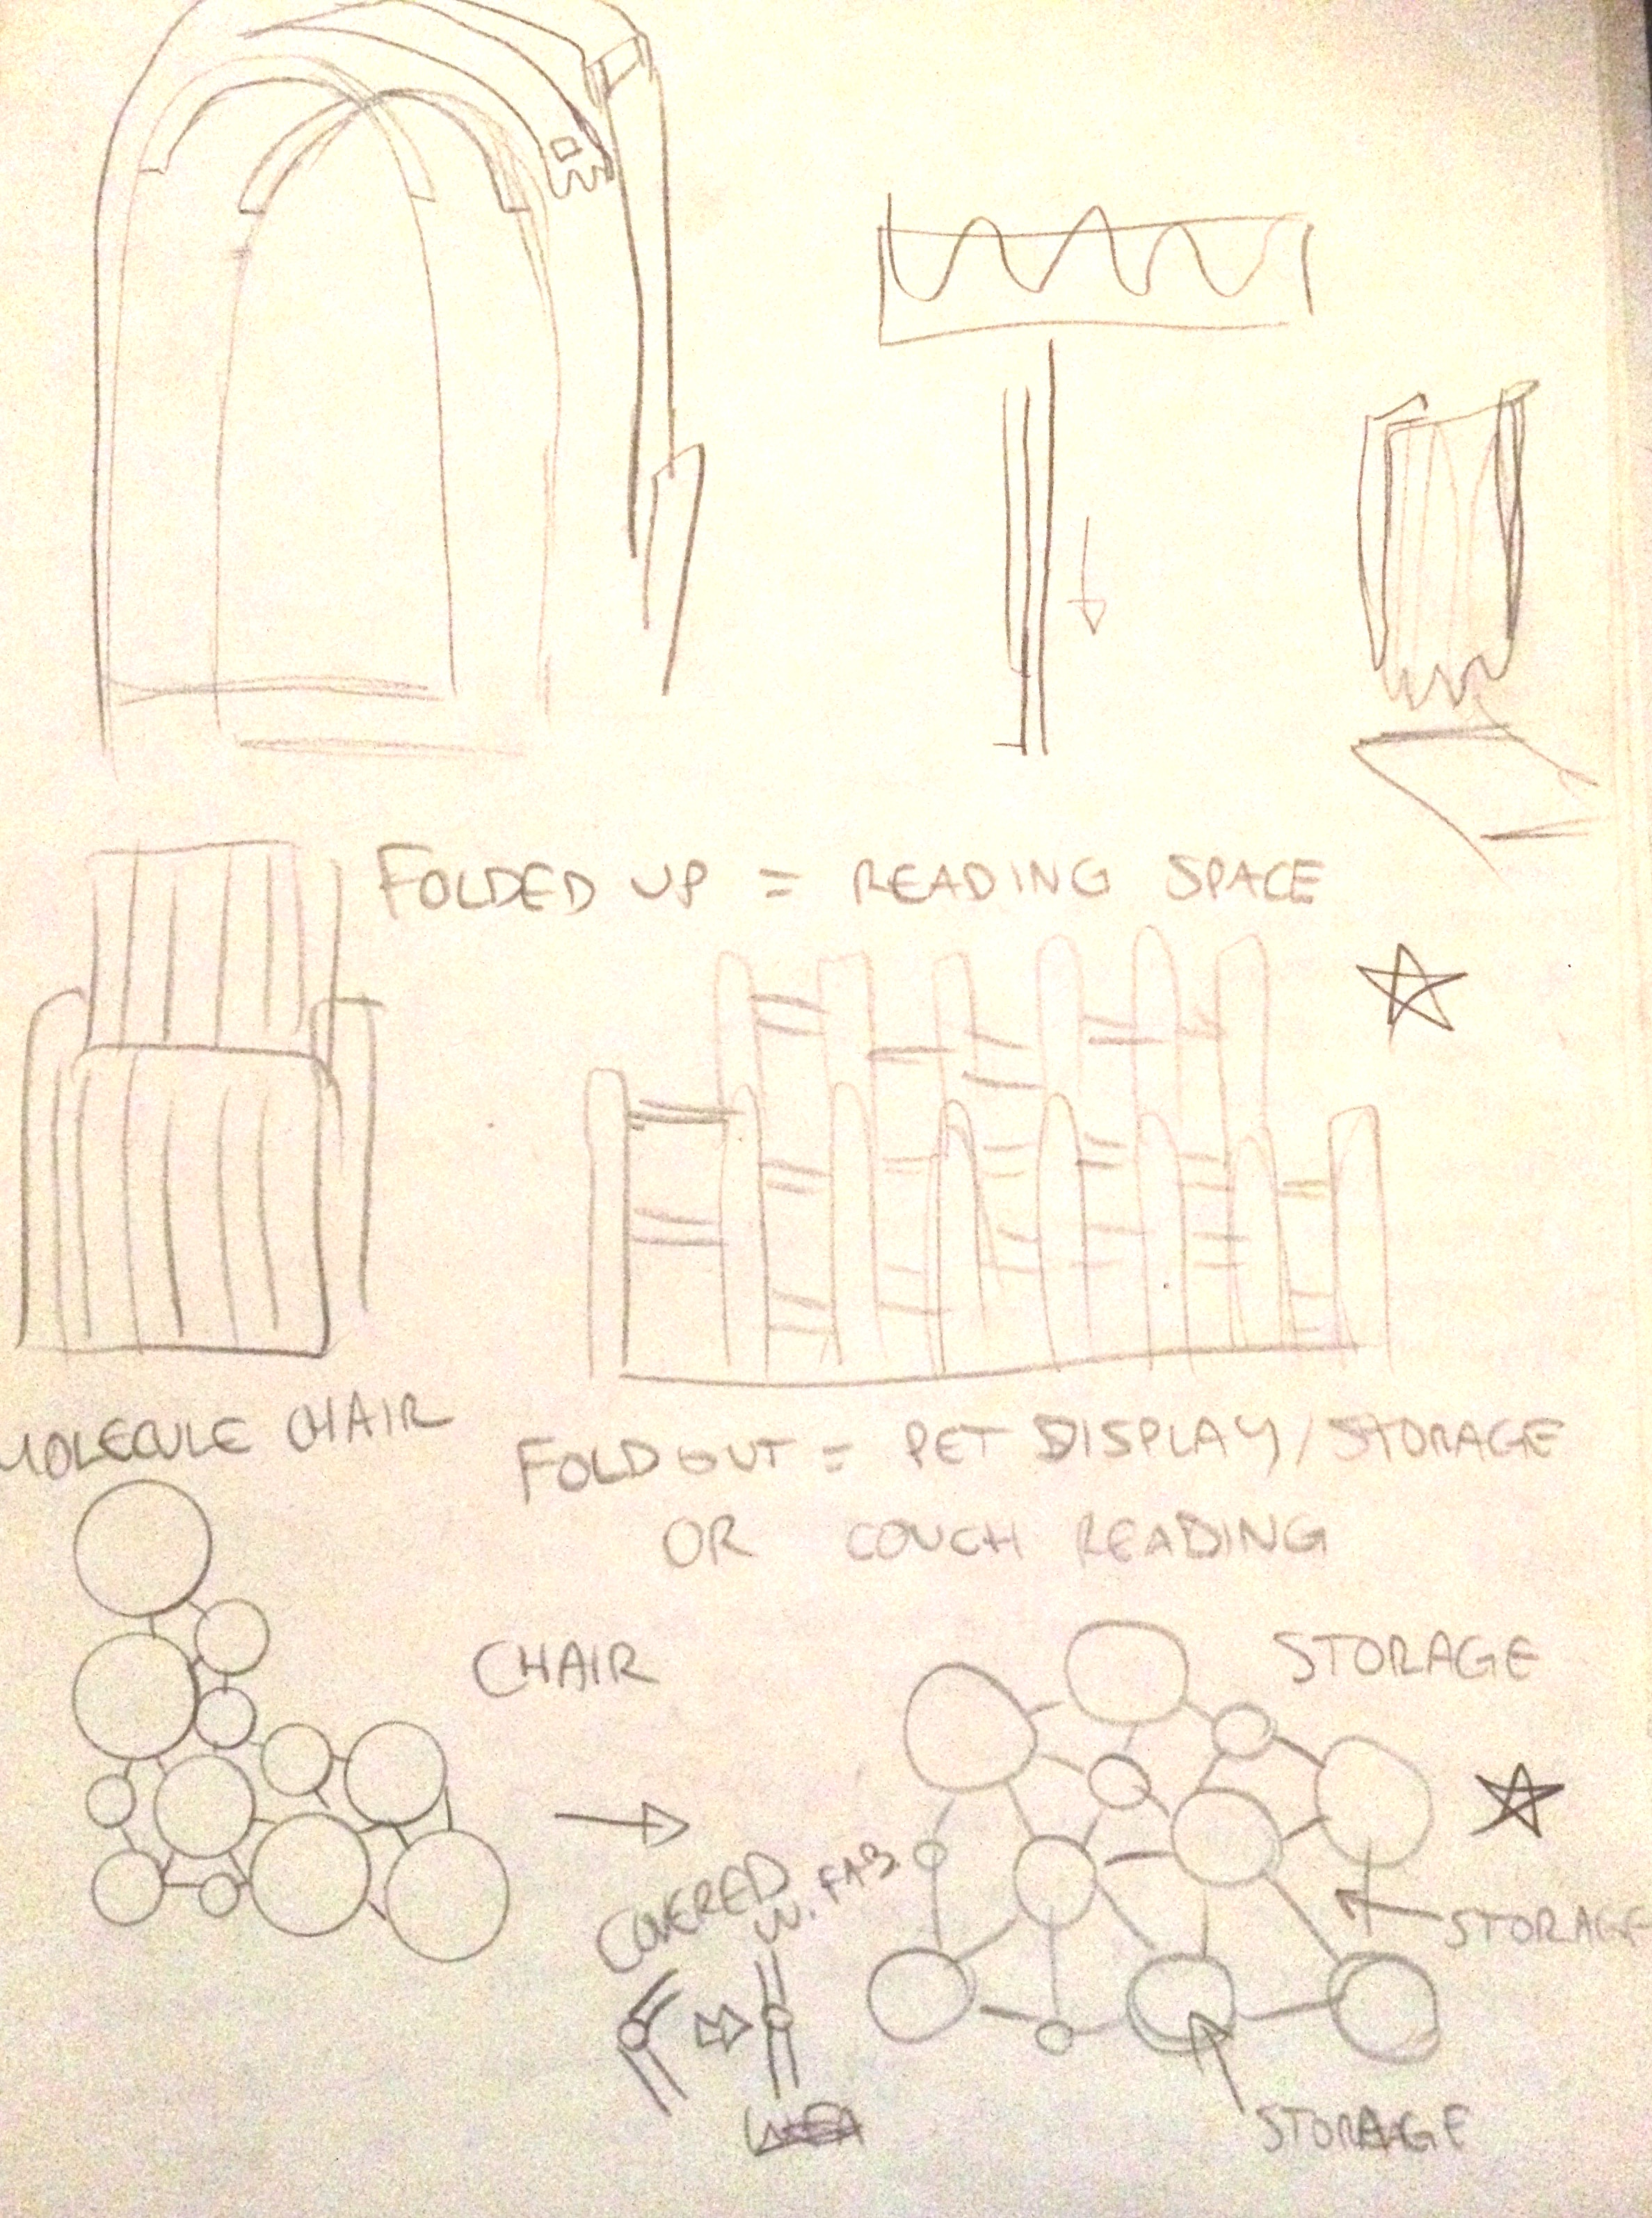 FOLDED UP = READING SPACE
MOLECULE CHAIR
FOLD OUT = PET DISPLAY/STORAGE
OR COUCH READING
CHAIR
STORAGE
COVERED
W. FAB
STORAGE
STORAGE